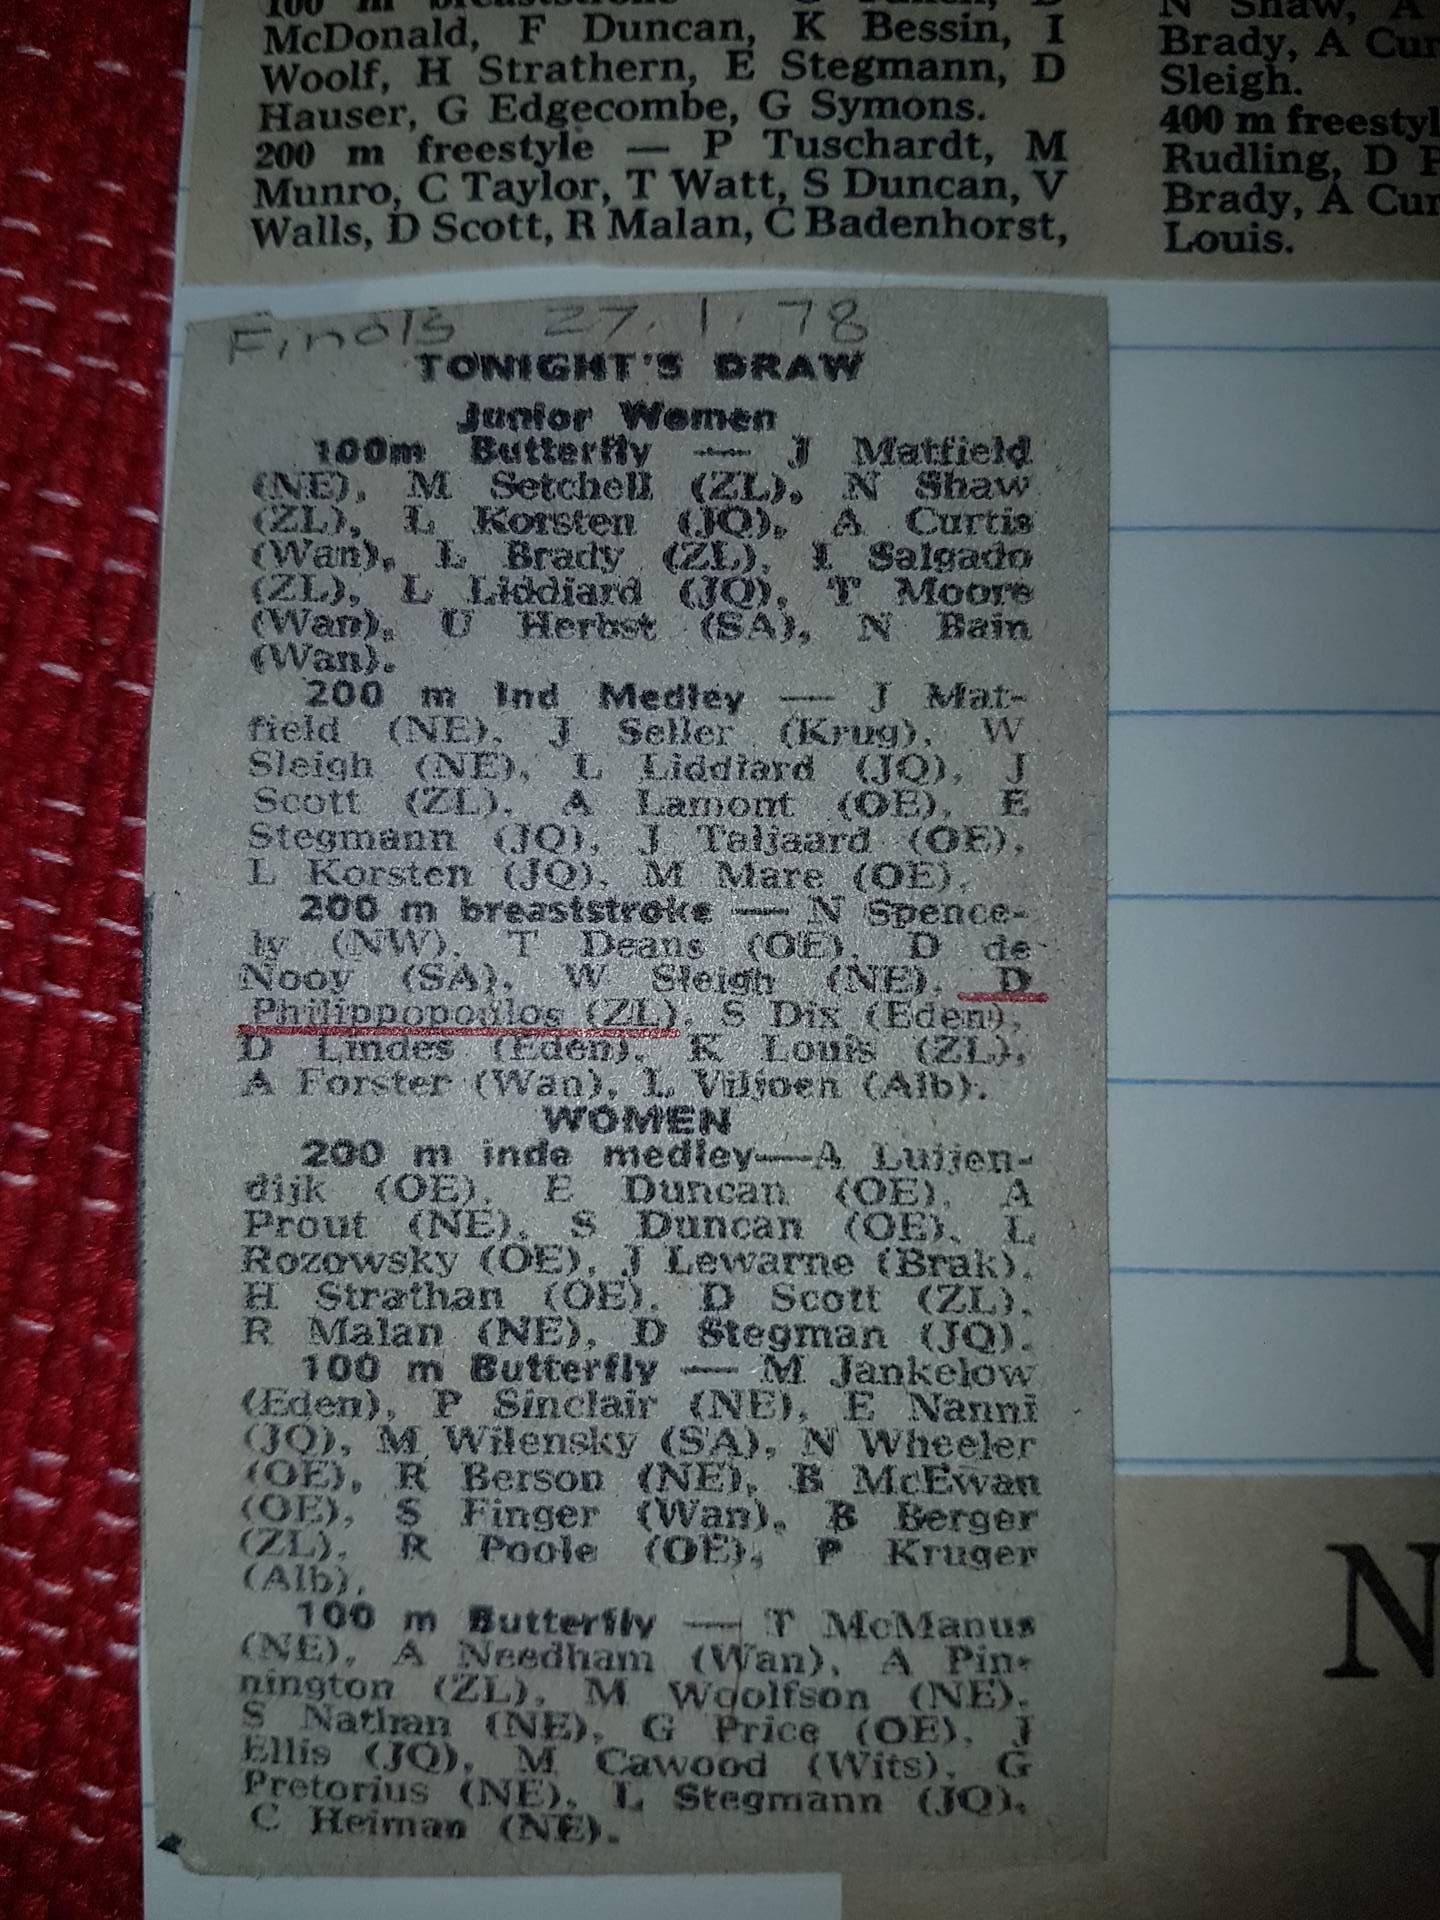 McDonald, F Duncan, K Bessin, I
Woolf, H Strathern, E Stegmann, D
Hauser, G Edgecombe, G Symons.
200 m freestyle — P Tuschardt, M
Munro, C Taylor, T Watt, S Duncan, V
Walls, D Scott, R Malan, C Badenhorst,
N Shaw, A
Brady, A Cur
Sleigh.
400 m freestyl
Rudling, D P
Brady, A Cur
Louis.
Finals 27.1.78
TONIGHT'S DRAW
Junior Women
100m Butterfly — J Matfield
(NE), M Setchell (ZL), N Shaw
(ZL), L Korsten (JQ), A Curtis
(Wan), L Brady (ZL), I Salgado
(ZL), L Liddiard (JQ), T Moore
(Wan), U Herbst (SA), N Bain
(Wan).
200 m Ind Medley — J Mat-
field (NE), J Seller (Krug), W
Sleigh (NE), L Liddiard (JQ), J
Scott (ZL), A Lamont (OE), E
Stegmann (JQ), J Taljaard (OE),
L Korsten (JQ), M Mare (OE),
200 m breaststroke — N Spence-
ly (NW), T Deans (OE), D de
Nooy (SA), W Sleigh (NE), D
Philippopoulos (ZL), S Dix (Eden),
D Lindes (Eden), K Louis (ZL),
A Forster (Wan), L Viljoen (Alb).
WOMEN
200 m inde medley—A Luijen-
dijk (OE), E Duncan (OE), A
Prout (NE), S Duncan (OE), L
Rozowsky (OE), J Lewarne (Brak),
H Strathan (OE), D Scott (ZL),
R Malan (NE), D Stegman (JQ).
100 m Butterfly — M Jankelow
(Eden), P Sinclair (NE), E Nanni
(JQ), M Wilensky (SA), N Wheeler
(OE), R Berson (NE), B McEwan
(OE), S Finger (Wan), B Berger
(ZL), R Poole (OE), P Kruger
(Alb).
100 m Butterfly — T McManus
(NE), A Needham (Wan), A Pin-
nington (ZL), M Woolfson (NE),
S Nathan (NE), G Price (OE), J
Ellis (JQ), M Cawood (Wits), G
Pretorius (NE), L Stegmann (JQ),
C Heiman (NE).
N